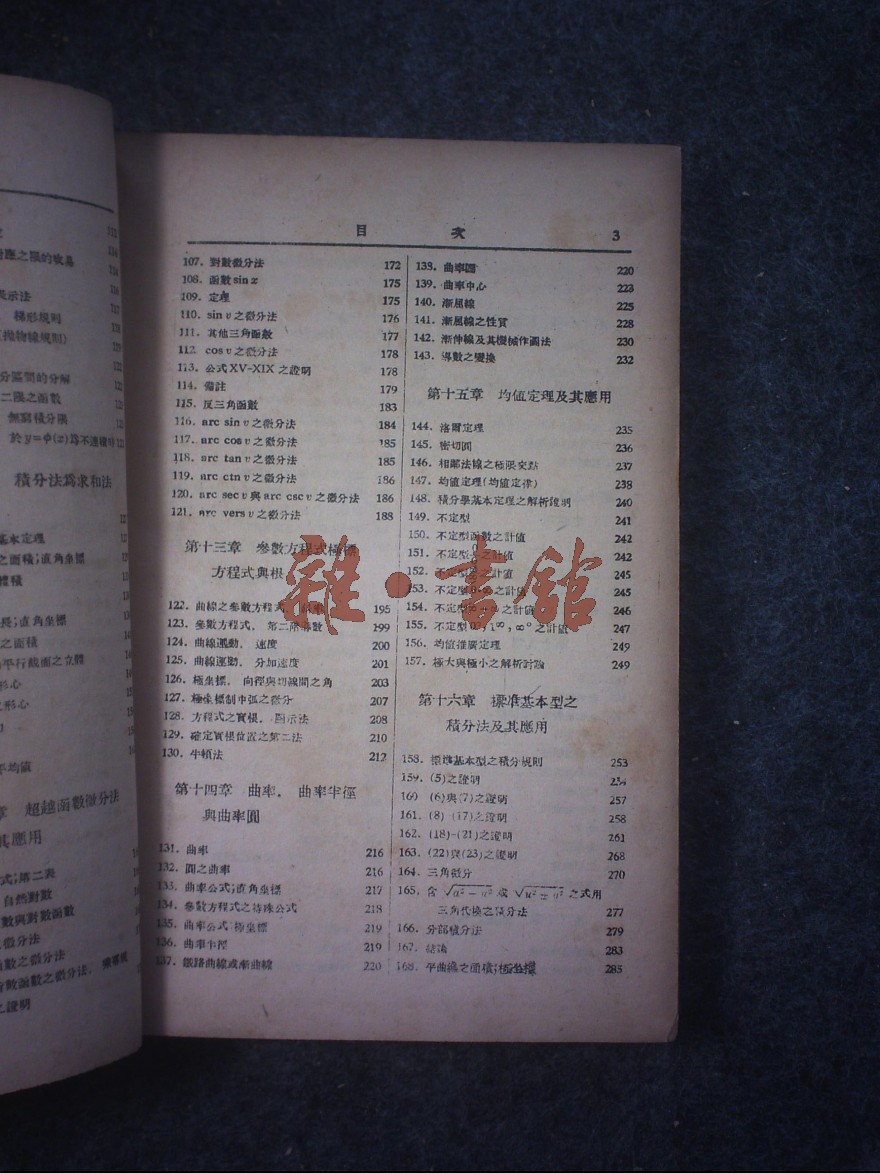 應之限的收斂
表示法
梯形規則
(拋物線規則)
分區間的分解
二限之函數
無窮積分限
於 y=φ(x) 爲不連續時
積分法爲求和法
基本定理
之面積;直角坐標
體積
長;直角坐標
之面積
平行截面之立體
形心
之形心
平均值
章 超越函數微分法
其應用
式;第二表
自然對數
數與對數函數
之微分法
函數之微分法
對數函數之微分法.
之證明
目 次 3
107. 對數微分法 172
108. 函數 sin x 175
109. 定理 175
110. sin v 之微分法 176
111. 其他三角函數 177
112 cos v 之微分法 178
113. 公式 XV-XIX 之證明 178
114. 備註 179
115. 反三角函數 183
116. arc sin v 之微分法 184
117. arc cos v 之微分法 185
118. arc tan v 之微分法 185
119. arc ctn v 之微分法 186
120. arc sec v 與 arc csc v 之微分法 186
121. arc vers v 之微分法 188
第十三章 參數方程式極標
方程式與根
122. 曲線之參數方程式. 195
123. 參數方程式. 第二階導數 199
124. 曲線運動. 速度 200
125. 曲線運動. 分加速度 201
126. 極坐標. 向徑與切線間之角 203
127. 極坐標制中弧之微分 207
128. 方程式之實根. 圖示法 208
129. 確定實根位置之第二法 210
130. 牛頓法 212
第十四章 曲率. 曲率半徑
與曲率圓
131. 曲率 216
132. 圓之曲率 216
133. 曲率公式;直角坐標 217
134. 參數方程式之特殊公式 218
135. 曲率公式;極坐標 219
136. 曲率半徑 219
137. 鐵路曲線或漸曲線 220
138. 曲率圓 220
139. 曲率中心 223
140. 漸屈線 225
141. 漸屈線之性質 228
142. 漸伸線及其機械作圖法 230
143. 導數之變換 232
第十五章 均值定理及其應用
144. 洛爾定理 235
145. 密切圓 236
146. 相鄰法線之極限交點 237
147. 均值定理(均值定律) 238
148. 積分學基本定理之解析證明 240
149. 不定型 241
150. 不定型函數之計值 242
151. 不定型 之計值 242
152. 不定型 之計值 245
153. 不定型 之計值 245
154. 不定型 之計值 246
155. 不定型 0⁰, 1^∞, ∞⁰ 之計值 247
156. 均值推廣定理 249
157. 極大與極小之解析討論 249
第十六章 標准基本型之
積分法及其應用
158. 標準基本型之積分規則 253
159. (5)之證明 254
160 (6)與(7)之證明 257
161. (8)-(17)之證明 258
162. (18)-(21)之證明 261
163. (22)與(23)之證明 268
164. 三角微分 270
165. 含 √(a²−u²) 或 √(u²±a²) 之式用
三角代換之積分法 277
166. 分部積分法 279
167. 結論 283
168. 平曲線之面積;極坐標 285
雜·書舘